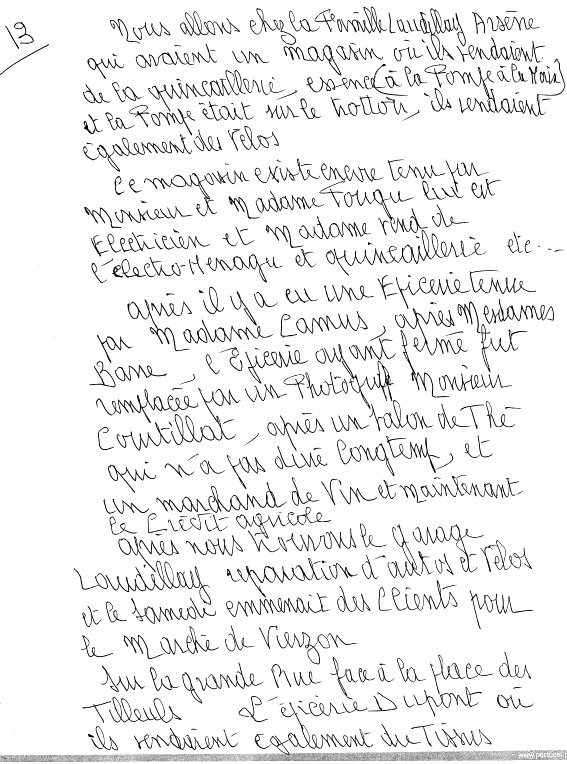 13
Nous allons chez la Famille Laudillay Arsène
qui avaient un magasin où ils vendaient
de la quincaillerie, essence (à la Pompe à la Main)
et la Pompe était sur le trottoir, ils vendaient
également des Vélos
Ce magasin existe encore tenu par
Monsieur et Madame Fouqu lui est
Electricien et Madame vend de
l'électro-Ménager et quincaillerie etc...
après il y a eu une Epicerie tenue
par Madame Camus, après Mesdames
Barre, l'Epicerie ayant fermé fut
remplacée par un Photographe Monsieur
Coutillat, après un Salon de Thé
qui n'a pas duré longtemp, et
un marchand de Vin et maintenant
le Crédit agricole
après nous trouvons le garage
Laudillay réparation d'autos et Vélos
et le Samedi emmenait des Clients pour
le Marché de Vierzon
Sur la grande Rue face à la place des
Tilleuls L'épicerie Dupont où
ils vendaient également du Tissus